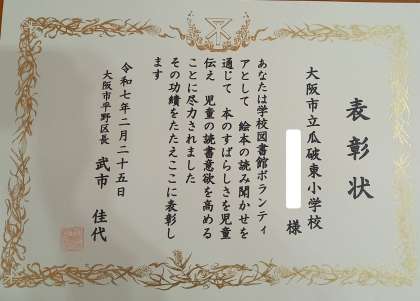 表彰状
大阪市立瓜破東小学校
様
あなたは学校図書館ボランティ
アとして 絵本の読み聞かせを
通じて 本のすばらしさを児童
伝え 児童の読書意欲を高める
ことに尽力されました
その功績をたたえここに表彰し
ます
令和七年二月二十五日
大阪市平野区長 武市 佳代